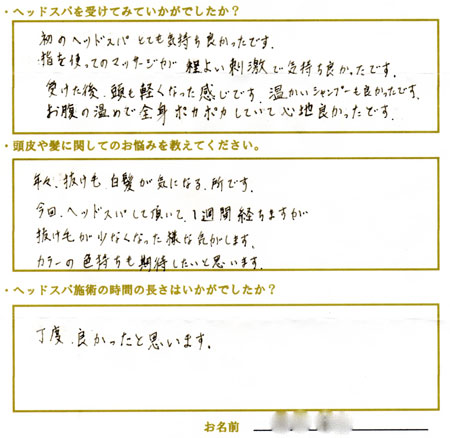 ・ヘッドスパを受けてみていかがでしたか？
初のヘッドスパ とても気持ち良かったです。
指を使ってのマッサージが 程よい刺激で気持ち良かったです。
受けた後、頭も軽くなった感じです。温かいシャンプーも良かったです。
お腹の温めで全身ポカポカしていて心地良かったです。
・頭皮や髪に関してのお悩みを教えてください。
年々、抜け毛 白髪が気になる、所です。
今回、ヘッドスパして頂いて、1週間経ちますが
抜け毛が少なくなった様な気がします。
カラーの色持ちも期待したいと思います。
・ヘッドスパ施術の時間の長さはいかがでしたか？
丁度、良かったと思います。
お名前